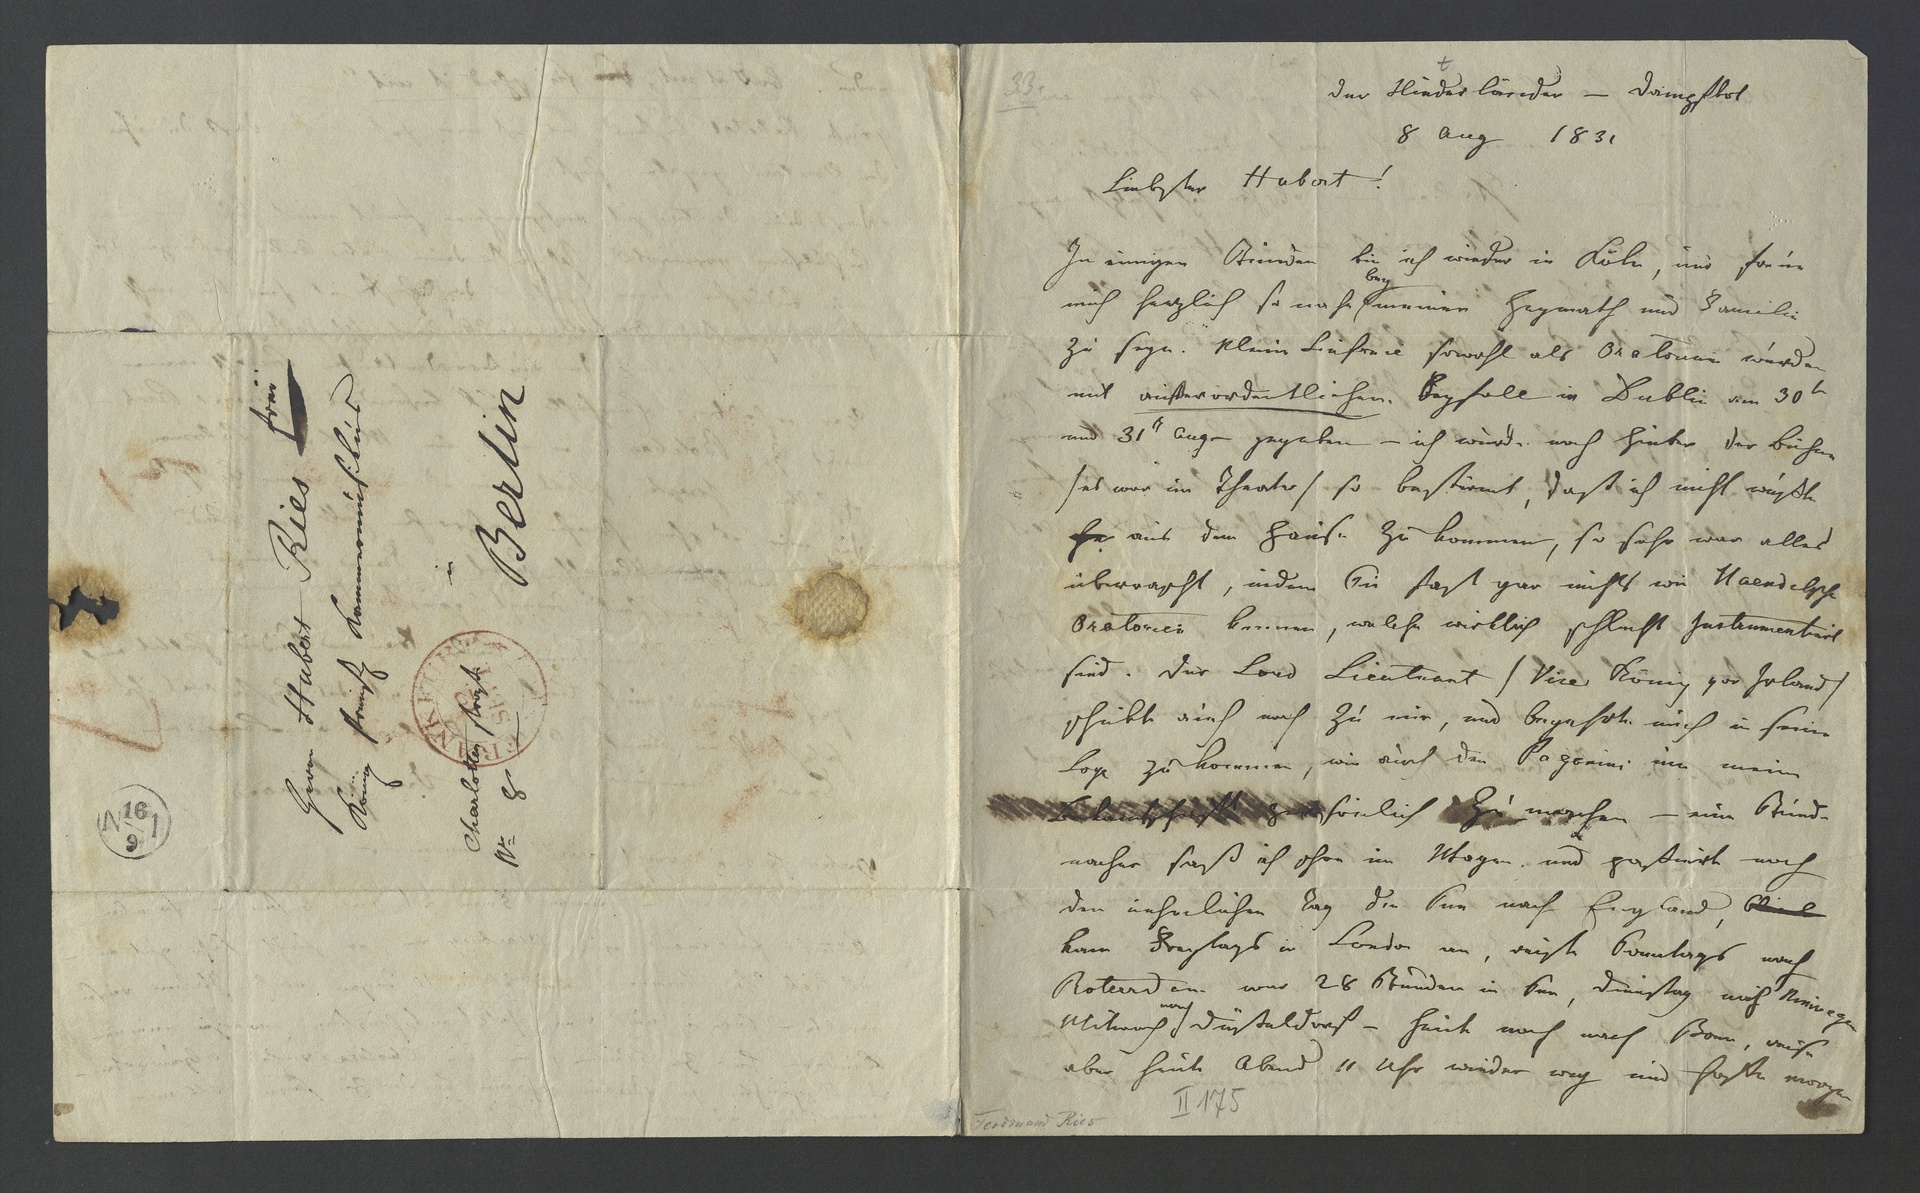 Herrn Hubert Ries
frei
König Preuß Kammermusikus
in
Berlin
Charlotten Straße
No 8
N 16/9 1
33.
der Niederländer — Dampfbot
8 Aug 1831
Liebster Hubert!
In einigen Stunden bin ich wieder in Köln, und freue
mich herzlich so nahe bey meiner Heymath und Familie
zu seyn. Meine Liska sowohl als Oratorium wurden
mit außerordentlichen Beyfall in Dublin am 30t
und 31t Aug gegeben — ich wurde noch hinter der Bühne
/es war im Theater/ so bestürmt, daß ich nicht wußte
aus dem Hause zu kommen, so sehr war alles
überrascht, indem Sie fast gar nichts wie Haendelsche
Oratorien kennen, welche wirklich schlecht Instrumentirt
sind. Der Lord Lieutnant /Vice König von Irland/
schickte auch nach zu mir, und begehrte mich in seine
Loge zu kommen, wie auch den Paganini um meine
Bekantschaft persönlich zu machen — eine Stunde
nacher saß ich schon im Wagen und passierte noch
den nehmlichen Tag die See nach England,
kam Freytags in London an, reiste Sonntags nach
Roterdam war 28 Stunden in See, Dienstag nach Nimwegen
Mitwoch nach Düsseldorf — heute noch nach Bonn, reise
aber heute Abend 11 Uhr wieder weg und hoffe morgen
II 175
Ferdinand Ries